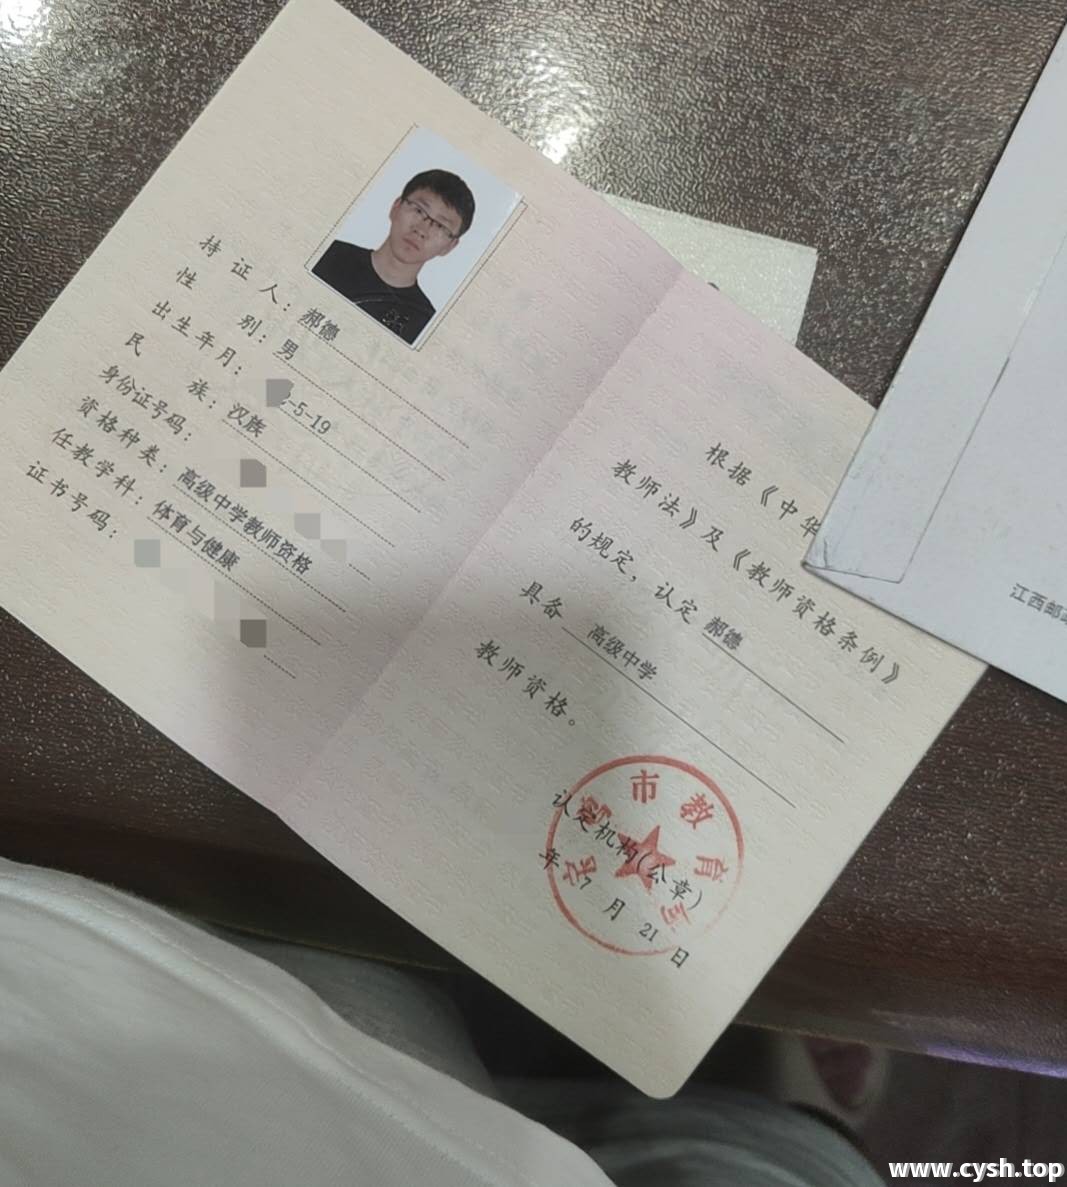 持证人：郝德
性别：男
出生年月：-5-19
民族：汉族
身份证号码：
资格种类：高级中学教师资格
任教学科：体育与健康
证书号码：
根据《中华
教师法》及《教师资格条例》
的规定，认定 郝德
具备 高级中学
教师资格。
市教育
认定机构(公章)
年 7 月 21 日
江西邮
www.cysh.top